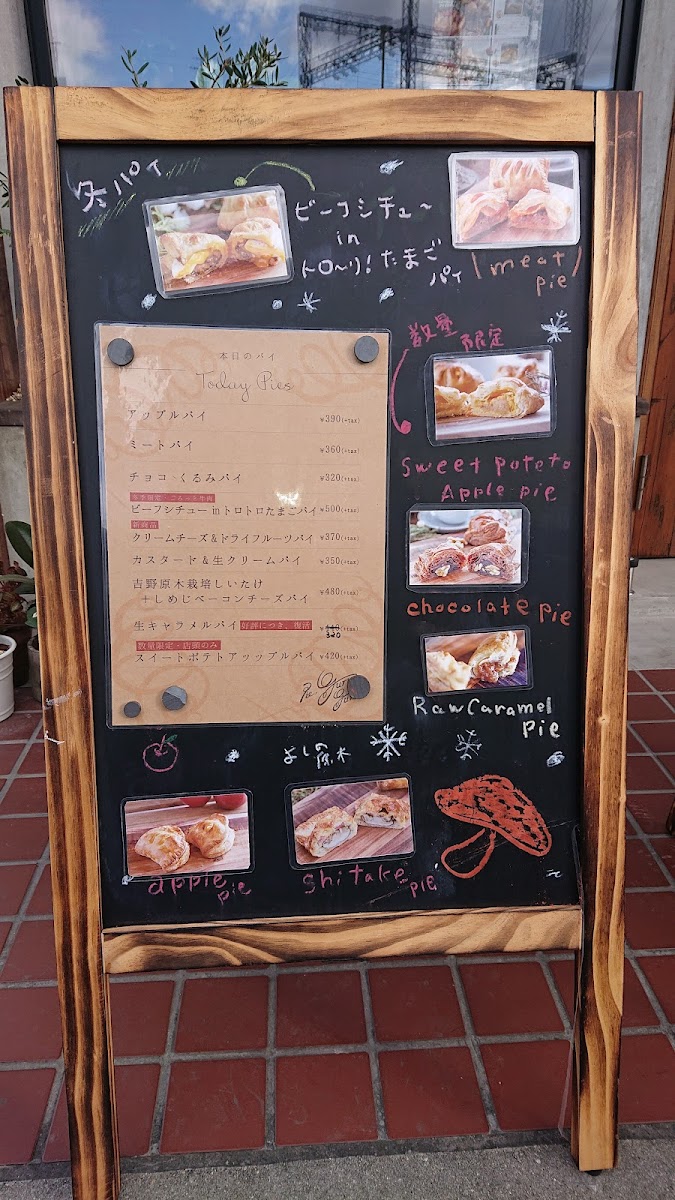 冬パイ
ビーフシチュー
in
トロ～リ！たまご
パイ
meat
pie
数量
限定
本日のパイ
Today Pies
アップルパイ ¥390(+tax)
ミートパイ ¥360(+tax)
チョコ×くるみパイ ¥320(+tax)
ビーフシチュー inトロトロたまごパイ ¥500(+tax)
新商品
クリームチーズ&ドライフルーツパイ ¥370(+tax)
カスタード&生クリームパイ ¥350(+tax)
吉野原木栽培しいたけ
+しめじベーコンチーズパイ ¥480(+tax)
生キャラメルパイ 好評につき、復活 (+tax)
数量限定・店頭のみ
スイートポテトアップルパイ ¥420(+tax)
Sweet Poteto
Apple pie
chocolate pie
Raw Caramel
pie
よしの原木
appie
pie
Shitake
pie